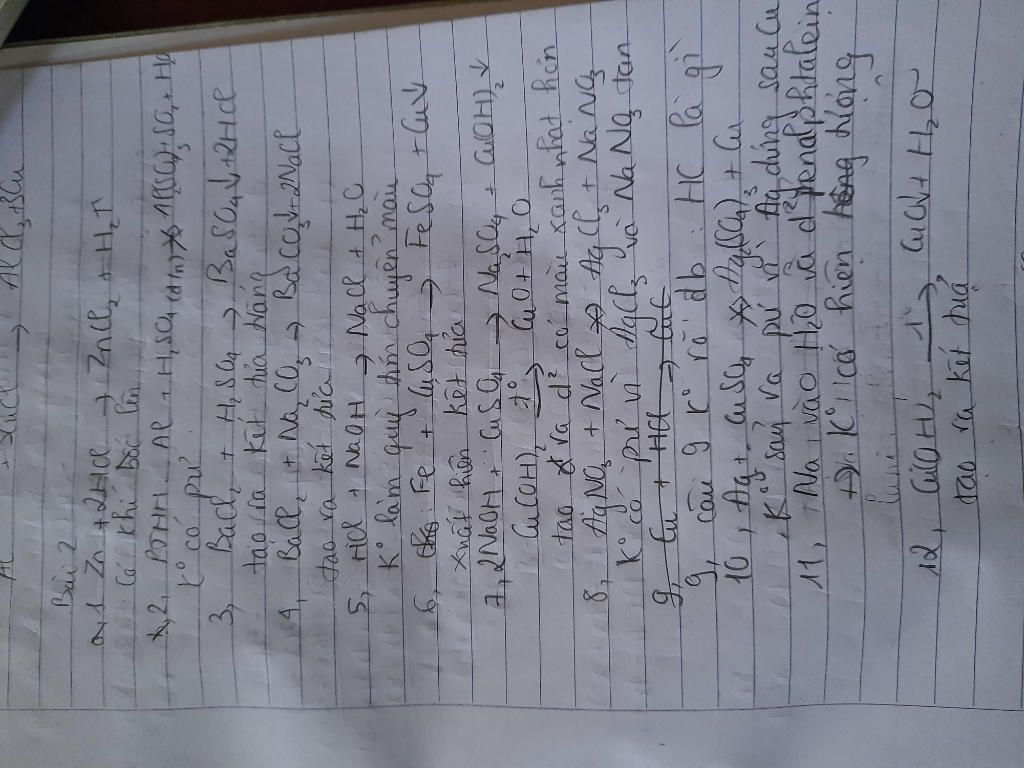 Al + 3HCl → AlCl₃ + 3Cu
Bài 2
a, 1, Zn + 2HCl → ZnCl₂ + H₂↑
Có khí bốc lên
K° có pư
3, BaCl₂ + H₂SO₄ → BaSO₄↓ + 2HCl
tạo ra kết tủa trắng
4, BaCl₂ + Na₂CO₃ → BaCO₃↓ + 2NaCl
tạo ra kết tủa
5, HCl + NaOH → NaCl + H₂O
K° làm quỳ tím chuyển màu
6, Fe + CuSO₄ → FeSO₄ + Cu↓
xuất hiện kết tủa
7, 2NaOH + CuSO₄ → Na₂SO₄ + Cu(OH)₂↓
Cu(OH)₂ t°→ CuO + H₂O
tạo ra d² có màu xanh nhạt hơn
8, AgNO₃ + NaCl → AgCl₃ + NaNO₃
K° có pư vì AgCl₃ và NaNO₃ tan
9, Cu + HCl → CuC
9, câu 9 K° rõ đb : HC là gì
10, Ag + CuSO₄ → Ag(SO₄)₃ + Cu
K° xảy ra pư vì Ag đứng sau Cu
11, Na vào H₂O và d² penolphtalein
→ K° có hiện tượng
12, Cu(OH)₂ t°→ CuO↓ + H₂O
tạo ra kết tủa